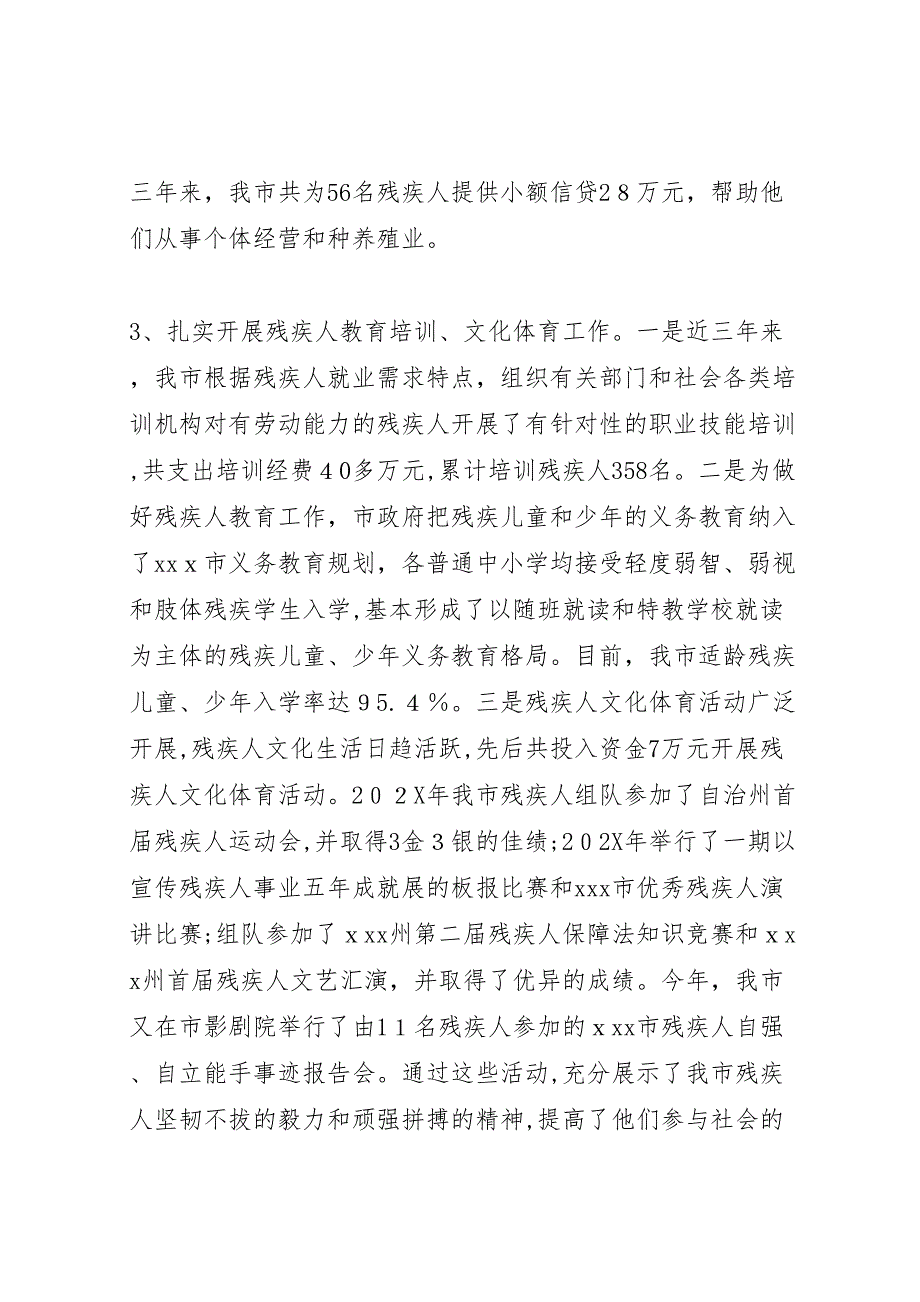 三年来，我市共为56名残疾人提供小额信贷2８万元，帮助他
们从事个体经营和种养殖业。
3、扎实开展残疾人教育培训、文化体育工作。一是近三年来
，我市根据残疾人就业需求特点，组织有关部门和社会各类培
训机构对有劳动能力的残疾人开展了有针对性的职业技能培训
,共支出培训经费４0多万元,累计培训残疾人358名。二是为做
好残疾人教育工作，市政府把残疾儿童和少年的义务教育纳入
了xxｘ市义务教育规划，各普通中小学均接受轻度弱智、弱视
和肢体残疾学生入学,基本形成了以随班就读和特教学校就读
为主体的残疾儿童、少年义务教育格局。目前，我市适龄残疾
儿童、少年入学率达９5.４％。三是残疾人文化体育活动广泛
开展,残疾人文化生活日趋活跃,先后共投入资金7万元开展残
疾人文化体育活动。2０２X年我市残疾人组队参加了自治州首
届残疾人运动会,并取得3金３银的佳绩;２０2X年举行了一期以
宣传残疾人事业五年成就展的板报比赛和xxx市优秀残疾人演
讲比赛;组队参加了ｘxx州第二届残疾人保障法知识竞赛和ｘx
x州首届残疾人文艺汇演，并取得了优异的成绩。今年，我市
又在市影剧院举行了由1１名残疾人参加的ｘxx市残疾人自强
、自立能手事迹报告会。通过这些活动,充分展示了我市残疾
人坚韧不拔的毅力和顽强拼搏的精神,提高了他们参与社会的